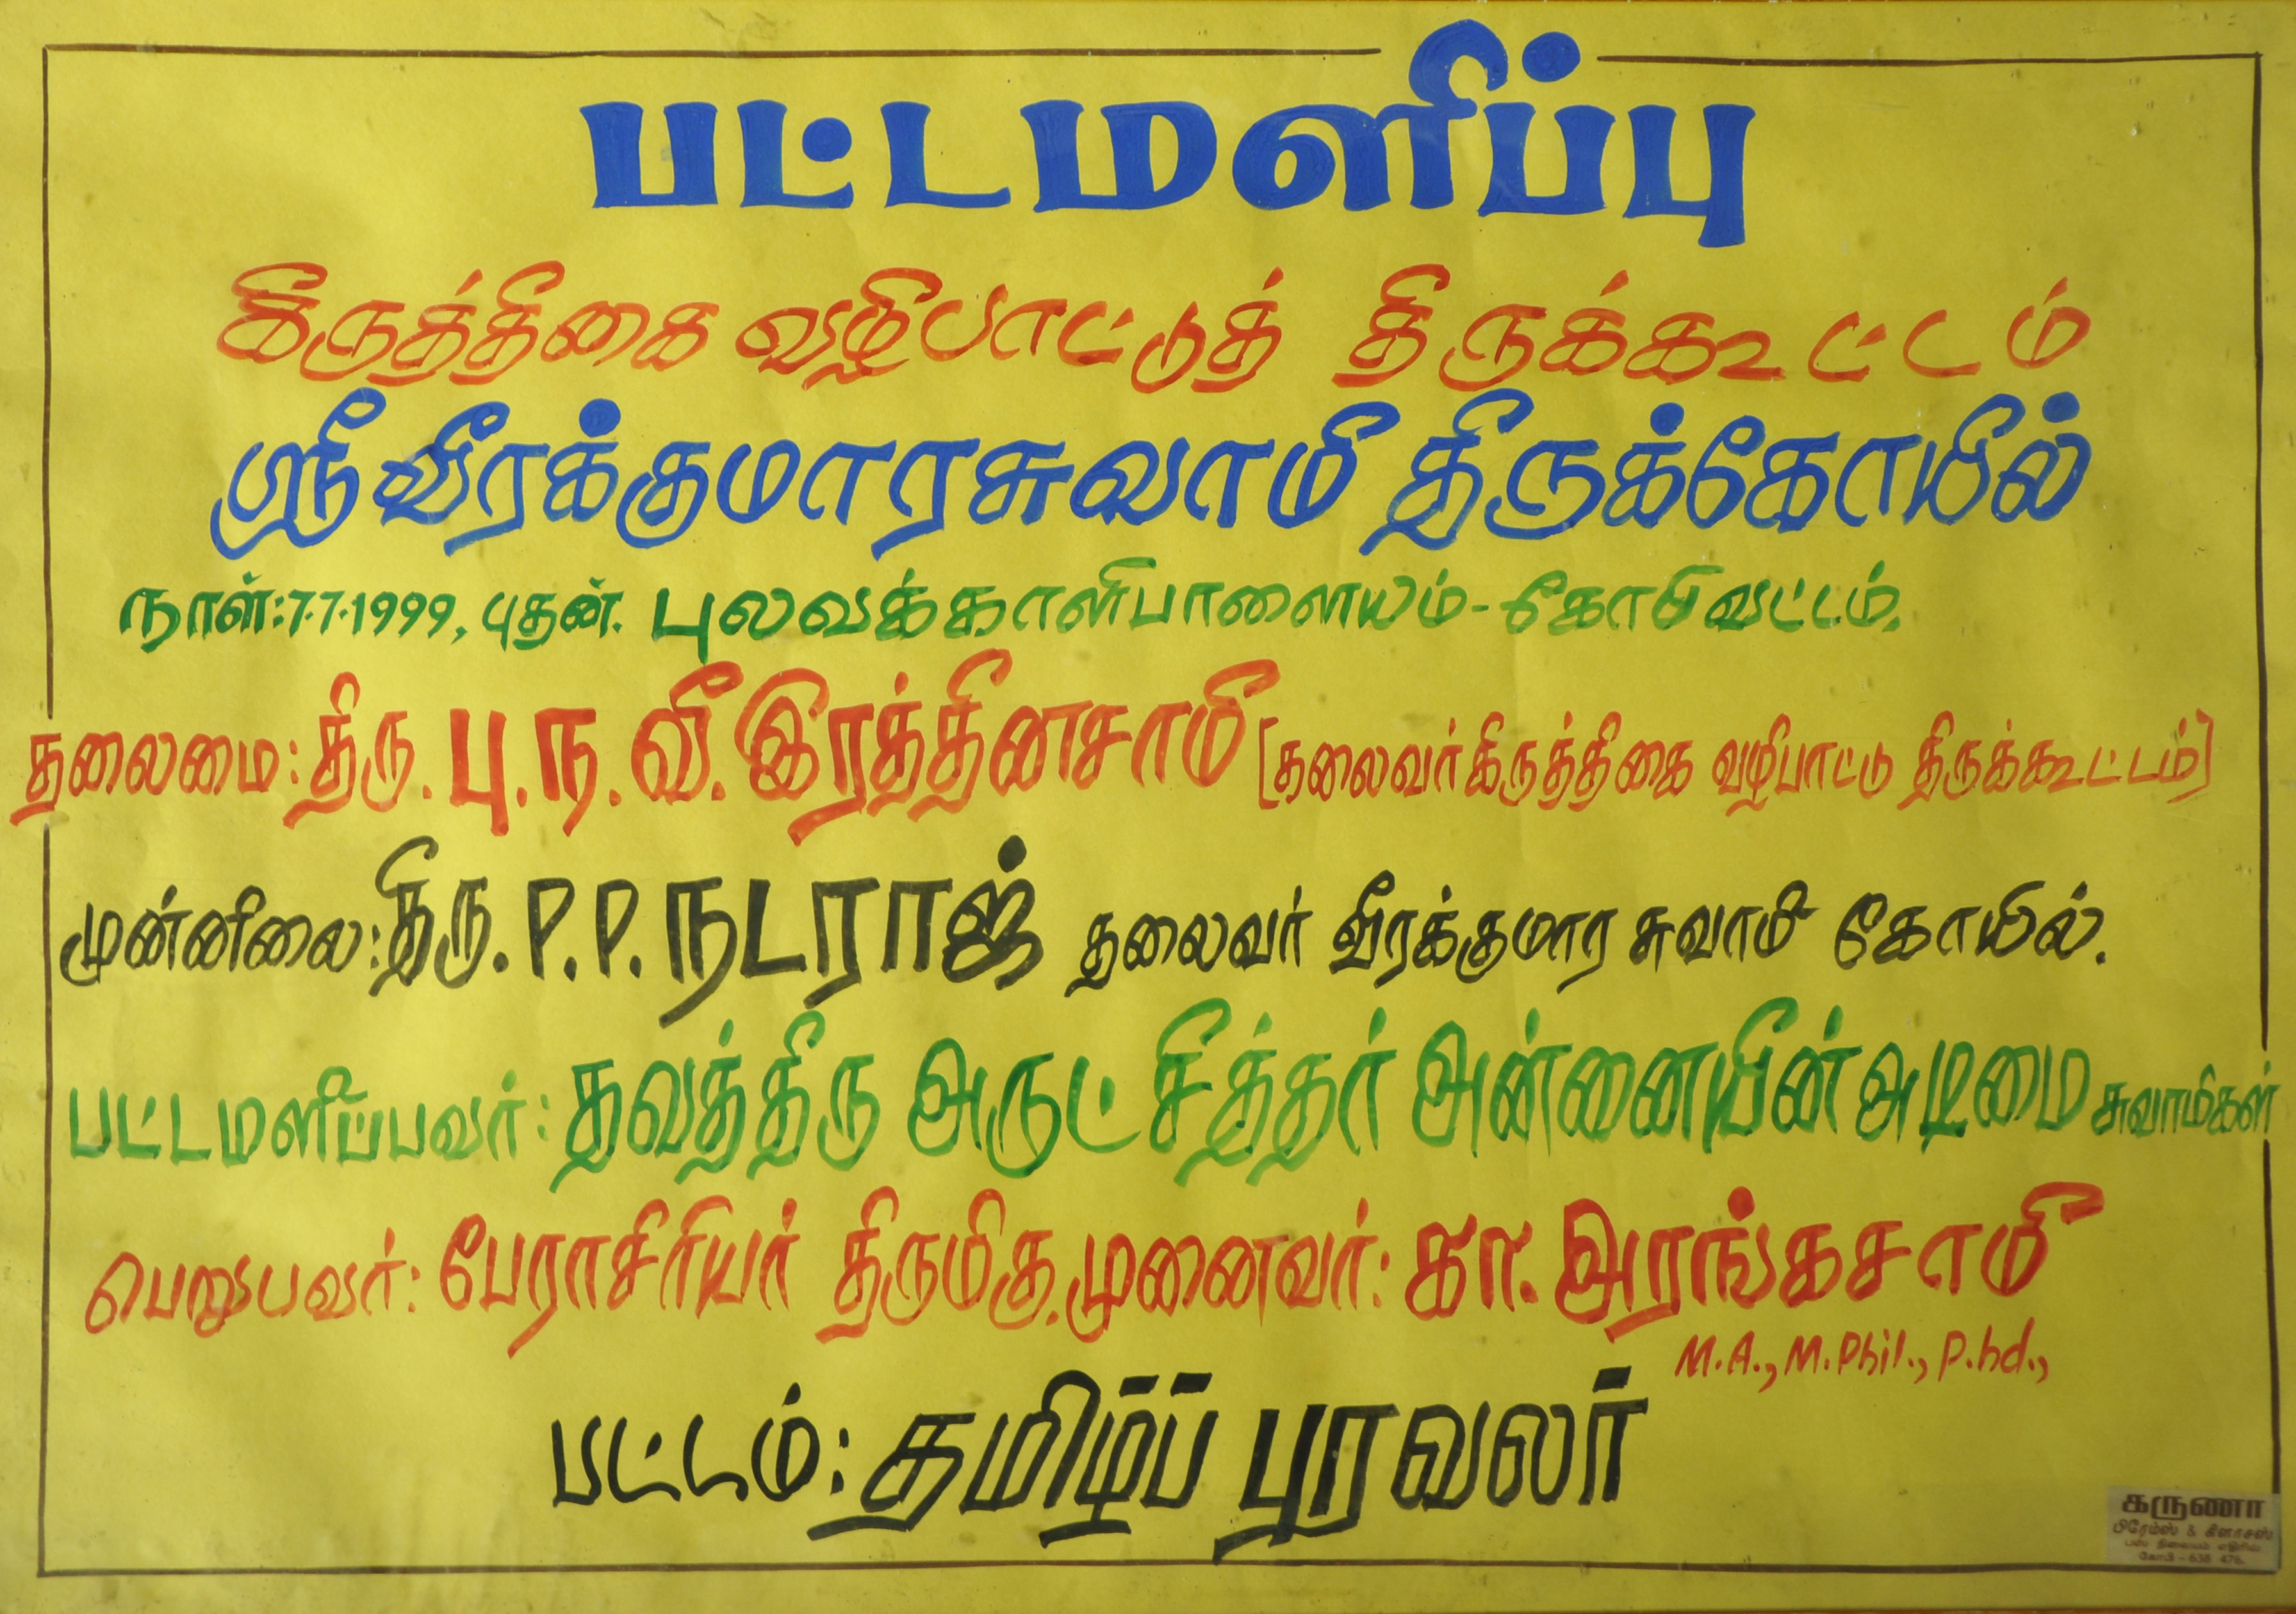 பட்டமளிப்பு
கிருத்திகை வழிபாட்டுத் திருக்கூட்டம்
ஸ்ரீ வீரக்குமாரசுவாமி திருக்கோயில்
நாள்:7.7.1999, புதன். புலவக்காளிபாளையம்-கோபிவட்டம்.
தலைமை: திரு. பு.ந. வீ. இரத்தினசாமி [தலைவர் கிருத்திகை வழிபாட்டு திருக்கூட்டம்]
முன்னிலை: திரு. P.P. நடராஜ் தலைவர் வீரக்குமார சுவாமி கோயில்.
பட்டமளிப்பவர்: தவத்திரு அருட் சித்தர் அன்னையின் அடிமை சுவாமிகள்
பெறுபவர்: பேராசிரியர் திருமிகு. முனைவர்: கா. அரங்கசாமி
M.A., M.Phil., P.hd.,
பட்டம்: தமிழ்ப் புரவலர்
கருணா
பிரேம்ஸ் & கிளாசஸ்
பஸ் நிலையம் எதிரில்
கோபி - 638 476.